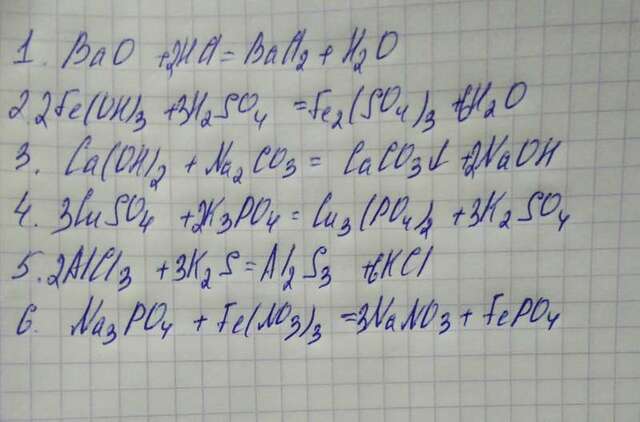 1. BaO + 2HCl = BaCl2 + H2O
2. 2Fe(OH)3 + 3H2SO4 = Fe2(SO4)3 + 6H2O
3. Ca(OH)2 + Na2CO3 = CaCO3↓ + 2NaOH
4. 3CuSO4 + 2K3PO4 = Cu3(PO4)2 + 3K2SO4
5. 2AlCl3 + 3K2S = Al2S3 + 6KCl
6. Na3PO4 + Fe(NO3)3 = 3NaNO3 + FePO4